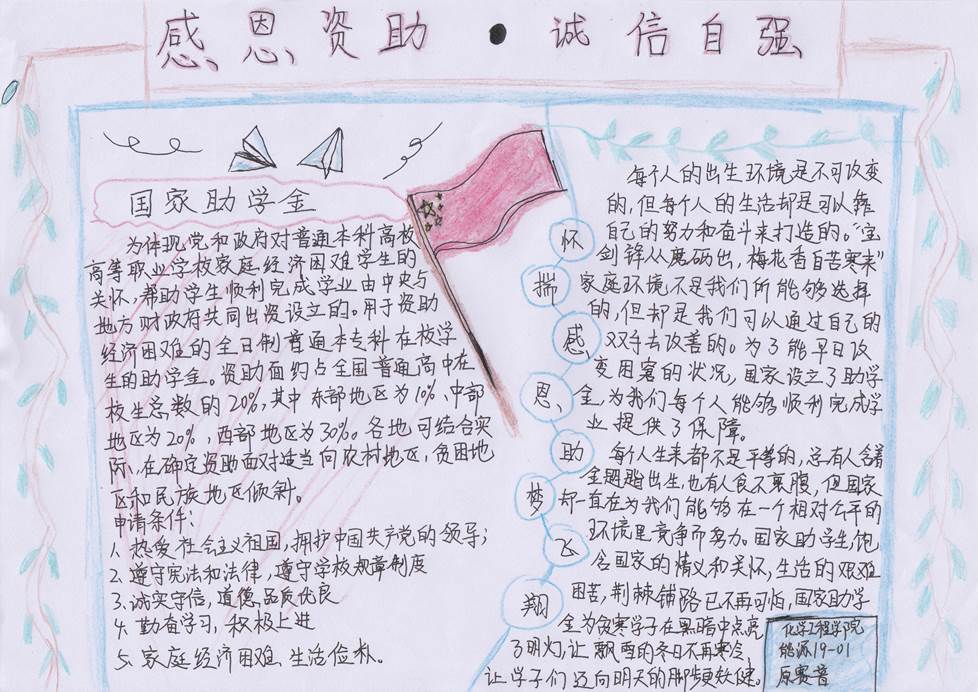 感恩资助·诚信自强
国家助学金
为体现党和政府对普通本科高校
高等职业学校家庭经济困难学生的
关怀,帮助学生顺利完成学业由中央与
地方财政府共同出资设立的。用于资助
经济困难的全日制普通本专科在校学
生的助学金。资助面约占全国普通高中在
校生总数的20%,其中东部地区为10%、中部
地区为20%,西部地区为30%。各地可结合实
际,在确定资助面对适当向农村地区,贫困地
区和民族地区倾斜。
申请条件:
1、热爱社会主义祖国,拥护中国共产党的领导;
2、遵守宪法和法律,遵守学校规章制度
3、诚实守信,道德品质优良
4、勤奋学习,积极上进
5、家庭经济困难、生活俭朴。
怀
揣
感
恩
助
梦
飞
翔
每个人的出生环境是不可改变
的,但每个人的生活却是可以靠
自己的努力和奋斗来打造的。“宝
剑锋从磨砺出,梅花香自苦寒来”
家庭环境不是我们所能够选择
的,但却是我们可以通过自己的
双手去改善的。为了能早日改
变困窘的状况,国家设立了助学
金为我们每个人能够顺利完成学
业提供了保障。
每个人生来都不是平等的,总有人含着
金题出生,也有人食不裹腹,但国家
却一直在为我们能够在一个相对公平的
环境里竞争而努力。国家助学生,饱
含国家的情义和关怀,生活的艰难
困苦,荆棘铺路已不再可怕,国家助学
金为贫寒学子在黑暗中点亮
了明灯,让飘雪的冬日不再寒冷,
让学子们迈向明天的脚步更软健。
化学工程学院
能源19-01
原赛普